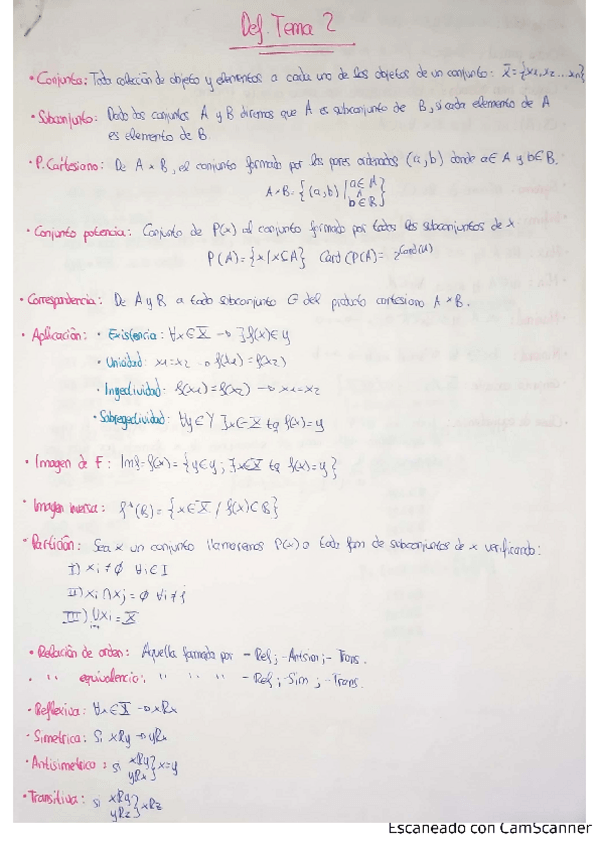 Def. Tema 2
• Conjunto: Toda colección de objeto y elementos a cada uno de los objetos de un conjunto: X̄ = {x1, x2 ... xn}
• Subconjunto: Dado dos conjuntos A y B diremos que A es subconjunto de B, si cada elemento de A
es elemento de B.
• P. Cartesiano: De A × B, el conjunto formado por los pares ordenados (a,b) donde a∈A y b∈B.
A×B = {(a,b) / a∈A ∧ b∈B}
• Conjunto potencia: Conjunto de P(x) al conjunto formado por todos los subconjuntos de x
P(A) = {x / x⊆A} Card(P(A) = 2^Card(A)
• Correspondencia: De A y B a todo subconjunto G del producto cartesiano A × B.
• Aplicación: • Existencia: ∀x∈X̄ → ∃f(x)∈y
• Unicidad: x1=x2 → f(x1)=f(x2)
• Inyectividad: f(x1)=f(x2) → x1=x2
• Sobreyectividad: ∀y∈Y ∃x∈X̄ tq f(x)=y
• Imagen de F: Imf=f(x)={y∈y; ∃x∈X̄ tq f(x)=y}
• Imagen inversa: f⁻¹(B)={x∈X̄ / f(x)⊂B}
• Partición: Sea x un conjunto llamaremos P(x) a toda fam de subconjuntos de x verificando:
I) Xi ≠ ∅ ∀i∈I
II) Xi ∩ Xj = ∅ ∀i≠j
III) ∪Xi = X̄
• Relación de orden: Aquella formada por - Ref; - Antsim; - Trans.
• " equivalencia: " " " - Ref; - Sim; - Trans.
• Reflexiva: ∀x∈X̄ → xRx
• Simetrica: Si xRy → yRx
• Antisimetrica: si xRy yRx } x=y
• Transitiva: si xRy yRz } xRz
Escaneado con CamScanner